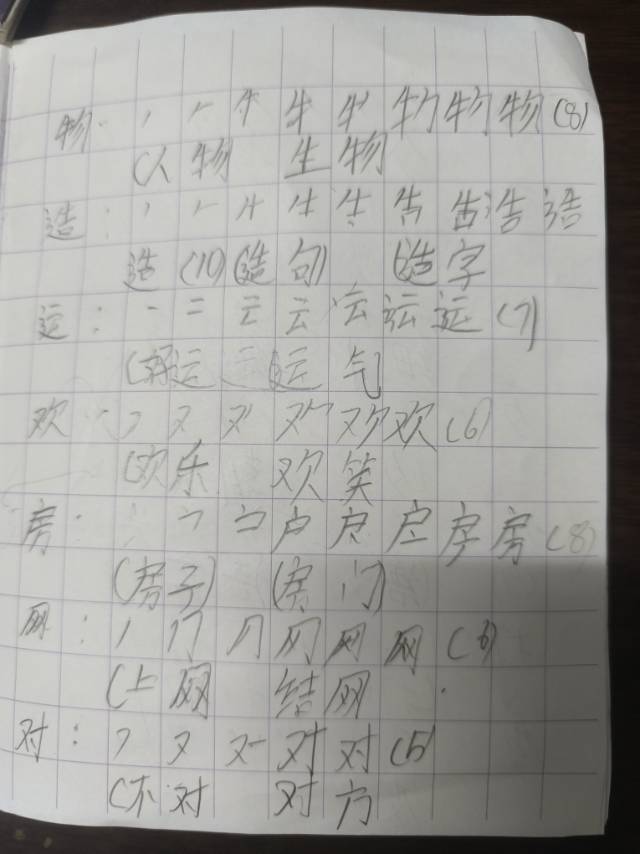 物: 丿 𠂉 牛 牛 牜 牞 物 物 (8)
(人物 生物
造: 丿 𠂉 牛 告 告 浩 诰
造 (10) (造句) (造字
运: 一 二 云 云 运 运 (7)
(好运 运气
欢: フ 又 欢 欢 (6)
(欢乐 欢笑
房: 丶 户 户 房 房 (8)
(房子) (房门)
网: 丨 冂 冈 网 网 (6)
(上网 结网
对: フ 又 对 对 (5)
(不对 对方